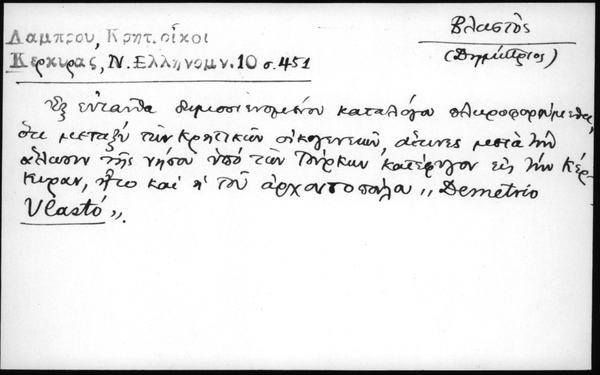 Βλαστὸς
(Δημήτριος)
Λαμπρου, Κρητ. οἶκοι
Κερκυρας, Ν. Ελληνομν. 10 σ. 451
Ἐξ ἐνταῦθα δημοσιευομένου καταλόγου πληροφορούμεθα,
ὅτι μεταξὺ τῶν Κρητικῶν οἰκογενειῶν, αἵτινες μετὰ τὴν
ἅλωσιν τῆς νήσου ὑπὸ τῶν Τούρκων κατέφυγον εἰς τὴν Κέρ-
κυραν, ἦτο καὶ ἡ τοῦ ἀρχοντοπούλου „Demetrio
Vlastó„.